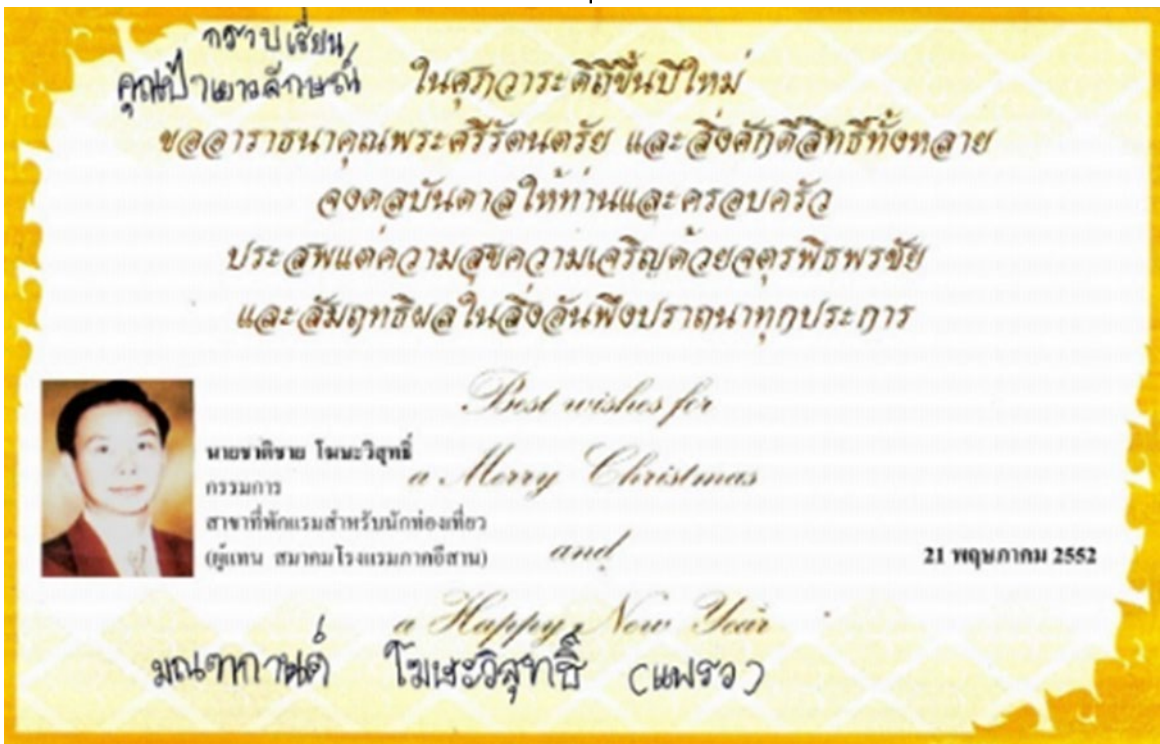 กราบเรียน
คุณป้าเยาวลักษณ์
ในศุภวาระดิถีขึ้นปีใหม่
ขออาราธนาคุณพระศรีรัตนตรัย และสิ่งศักดิ์สิทธิ์ทั้งหลาย
จงดลบันดาลให้ท่านและครอบครัว
ประสพแต่ความสุขความเจริญด้วยจตุรพิธพรชัย
และสัมฤทธิผลในสิ่งอันพึงปราถนาทุกประการ
Best wishes for
a Merry Christmas
and
a Happy New Year
นายชาติชาย โฆษะวิสุทธิ์
กรรมการ
สาขาที่พักแรมสำหรับนักท่องเที่ยว
(ผู้แทน สมาคมโรงแรมภาคอีสาน)
21 พฤษภาคม 2552
มณฑกานต์ โฆษะวิสุทธิ์ (แฟรว)